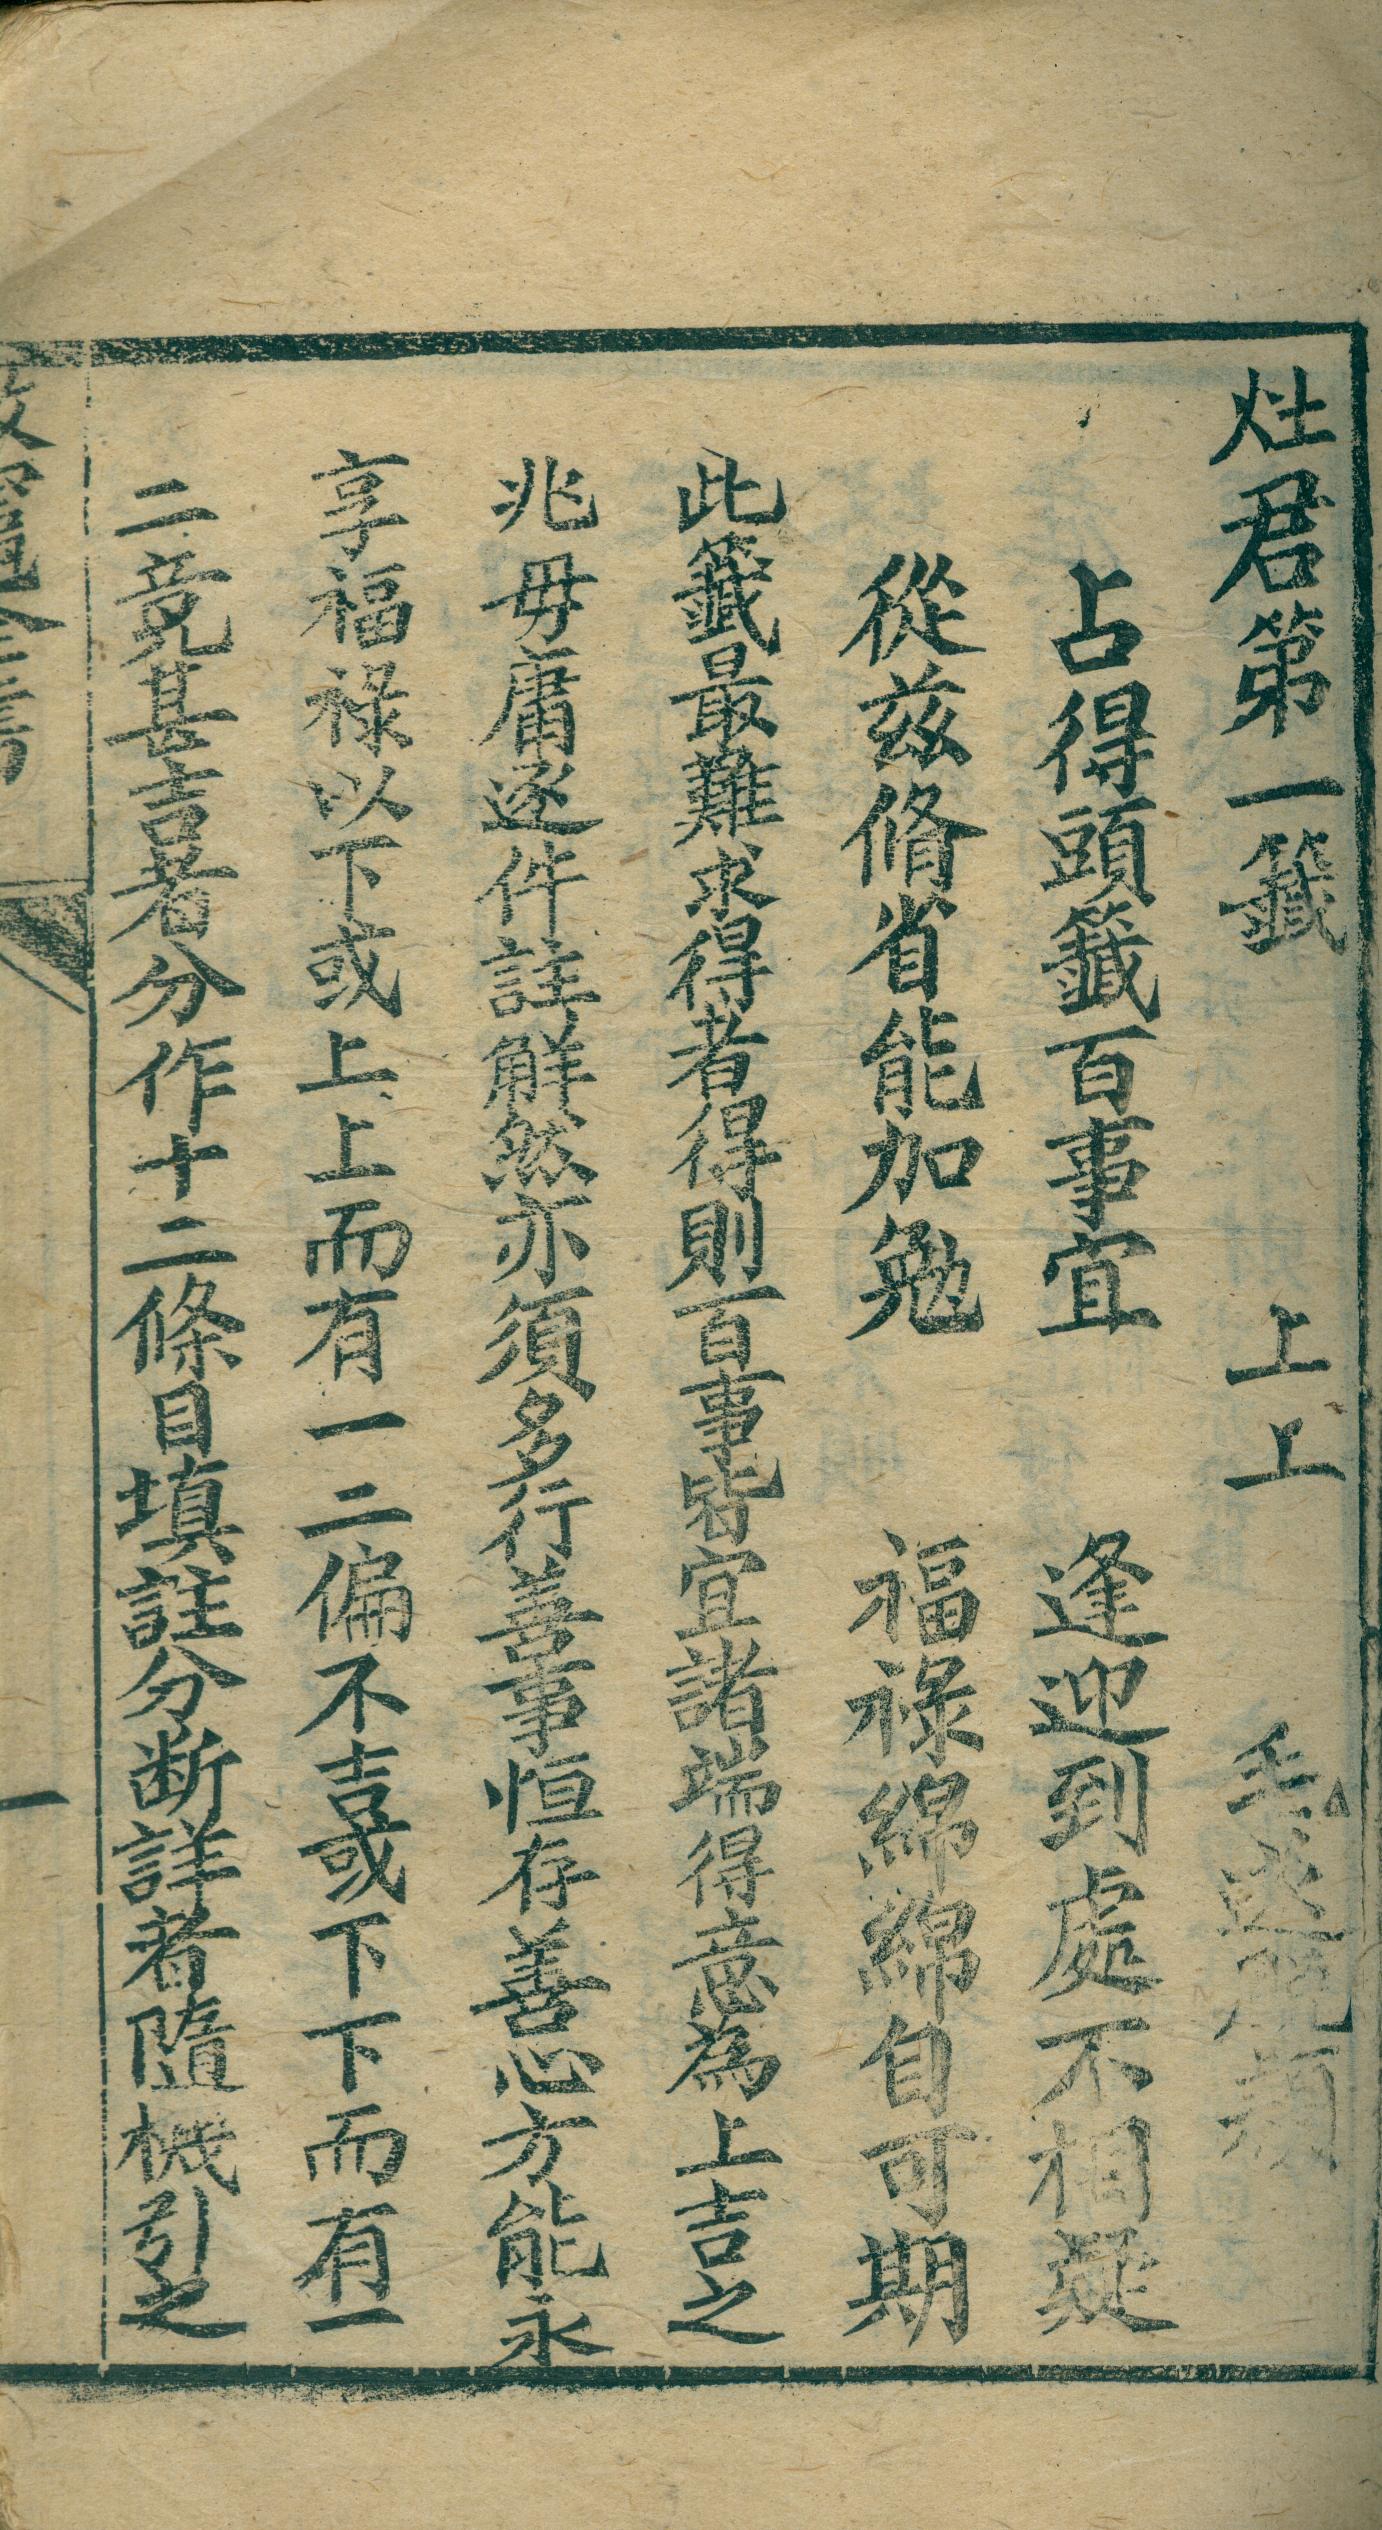 灶君第一籤 上上 毛遂脫穎
占得頭籤百事宜 逢迎到處不相疑
從兹脩省能加勉 福祿綿綿自可期
此籤最難求得者得則百事皆宜諸端得意為上吉之
兆毋庸逐件註解然亦須多行善事恒存善心方能永
享福祿以下或上上而有一二偏不喜或下下而有一
二竟甚吉者分作十二條目填註分断詳者隨機引之
一